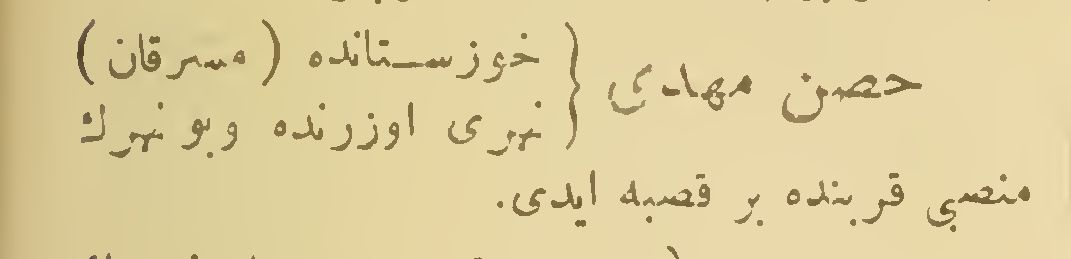 حصن مهدى } خوزستانده (مسرقان)
نهرى اوزرنده وبو نهرك
منصبى قربنده بر قصبه ايدى.